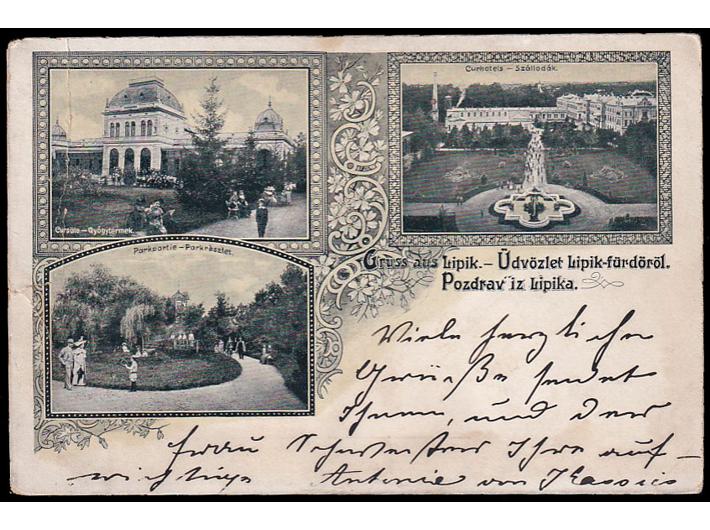 Cursäle – Gyógytermek.
Curhotels – Szállodák.
Parkpartie – Parkrészlet.
Gruss aus Lipik. – Üdvözlet Lipik-fürdöröl.
Pozdrav iz Lipika.
Viele herzliche
Grüße sendet
Ihnen, und der
Frau Schwester Ihre auf-
richtige Antonie von